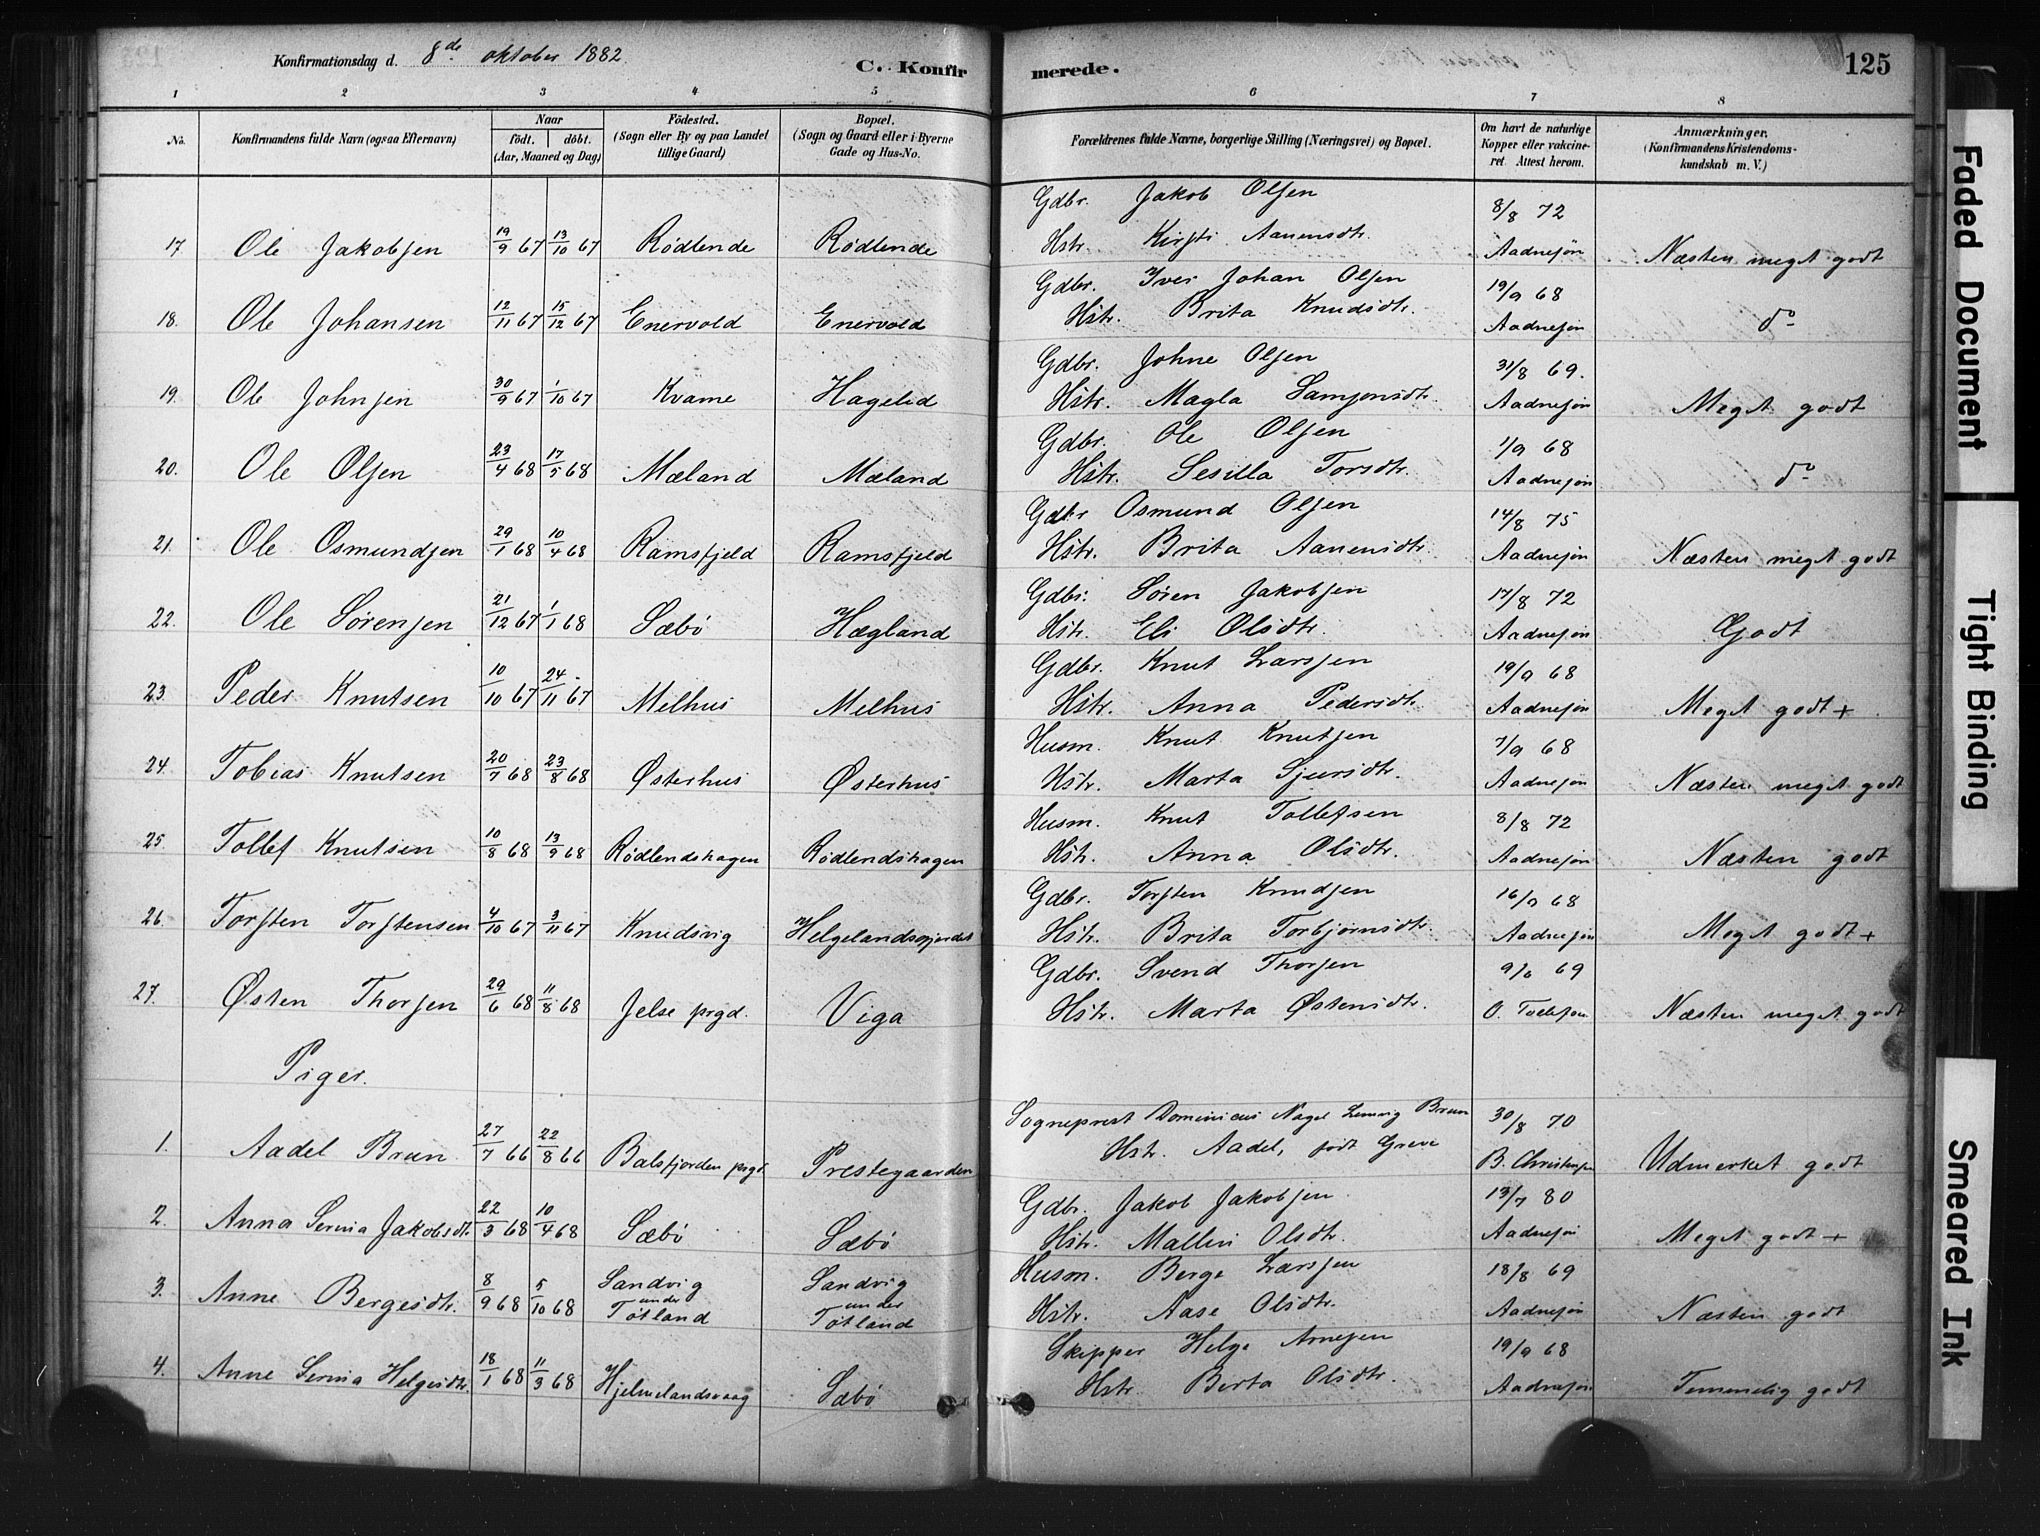 Konfirmationsdag d. 8de oktober 1882
C. Konfirmerede.
125
1 2 3 4 5 6 7 8
No. Konfirmandens fulde Navn (ogsaa Efternavn) Naar födt. döbt. (Aar, Maaned og Dag) Födested. (Sogn eller By og paa Landet tillige Gaard) Bopæl. (Sogn og Gaard eller i Byerne Gade og Hus-No. Forældrenes fulde Navne, borgerlige Stilling (Næringsvei) og Bopæl. Om havt de naturlige Kopper eller vakcineret. Attest herom. Anmærkninger. (Konfirmandens Kristendomskundskab m. V.)
Gdbr. Jakob Olsen 8/8 72
17 Ole Jakobsen 19/9 67 13/10 67 Rödlende Rödlende Hstr. Kirsti Aanensdtr. Aadnesøn Næsten meget godt
Gdbr. Iver Johan Olsen 19/9 68
18. Ole Johansen 12/11 67 15/12 67 Enervold Enervold Hstr. Brita Knudsdtr. Aadnesøn do
Gdbr. Johne Olsen 31/8 69.
19. Ole Johnsen 30/9 67 1/10 67 Kvame Hagelid Hstr. Magla Samsonsdtr. Aadnesøn Meget godt
Gdbr. Ole Olsen 1/9 68
20. Ole Olsen 23/4 68 17/5 68 Mæland Mæland Hstr. Sesilla Torsdtr. Aadnesøn do
Gdbr Osmund Olsen 14/8 75
21. Ole Osmundsen 29/1 68 10/4 68 Ramsfjeld Ramsfjeld Hstr. Brita Aanensdtr. Aadnesøn Næsten meget godt
Gdbr. Søren Jakobsen 17/8 72
22. Ole Sørensen 21/12 67 1/1 68 Sæbö Hægland Hstr. Eli Olsdtr. Aadnesøn Godt
Gdbr. Knut Larssen 19/9 68
23. Peder Knutsen 10/10 67 24/11 67 Melhus Melhus Hstr. Anna Pedersdtr. Aadnesøn Meget godt +
Husm. Knut Knutsen 7/9 68
24. Tobias Knutsen 20/7 68 23/8 68 Østerhus Østerhus Hstr. Marta Sjursdtr. Aadnesøn Næsten meget godt
Husm. Knut Tollefsen 8/8 72
25 Tollef Knutsen 10/8 68 13/9 68 Rödlendshagen Rödlendshagen Hstr. Anna Olsdtr. Aadnesøn Næsten godt
Gdbr. Torsten Knudsen 16/9 68
26. Torsten Torstensen 4/10 67 3/11 67 Knudsvig Hstr. Brita Torbjørnsdtr. Aadnesøn Meget godt +
Gdbr. Svend Thorsen 9/6 69
27. Østen Thorsen 29/6 68 11/8 68 Jelse prgd. Viga Hstr. Marta Østensdtr. O. Tollefsen Næsten meget godt
Piger.
Sogneprest Dominicus Nagel Lemvig Brun 30/8 70
1. Aadel Brun 27/7 66 22/8 66 Balsfjorden prgd. Prestegaarden Hstr. Aadel, født Greve B. Christensen Udmerket godt
Gdbr. Jakob Jakobsen 13/7 80
2. Anna Serina Jakobsdtr. 22/3 68 10/4 68 Sæbö Sæbö Hstr. Mallin Olsdtr. Aadnesøn Meget godt +
Husm. Berge Larssen 18/8 69
3. Anne Bergesdtr. 8/9 68 5/10 68 Sandvig under Tötland Sandvig under Tötland Hstr. Aase Olsdtr. Aadnesøn Næsten godt
Skipper Helge Arnesen 19/9 68
4. Anne Serina Helgesdtr. 18/1 68 11/3 68 Hjelmelandsvaag Sæbö Hstr. Berta Olsdtr. Aadnesøn Temmelig godt
Faded Document
Tight Binding
Smeared Ink